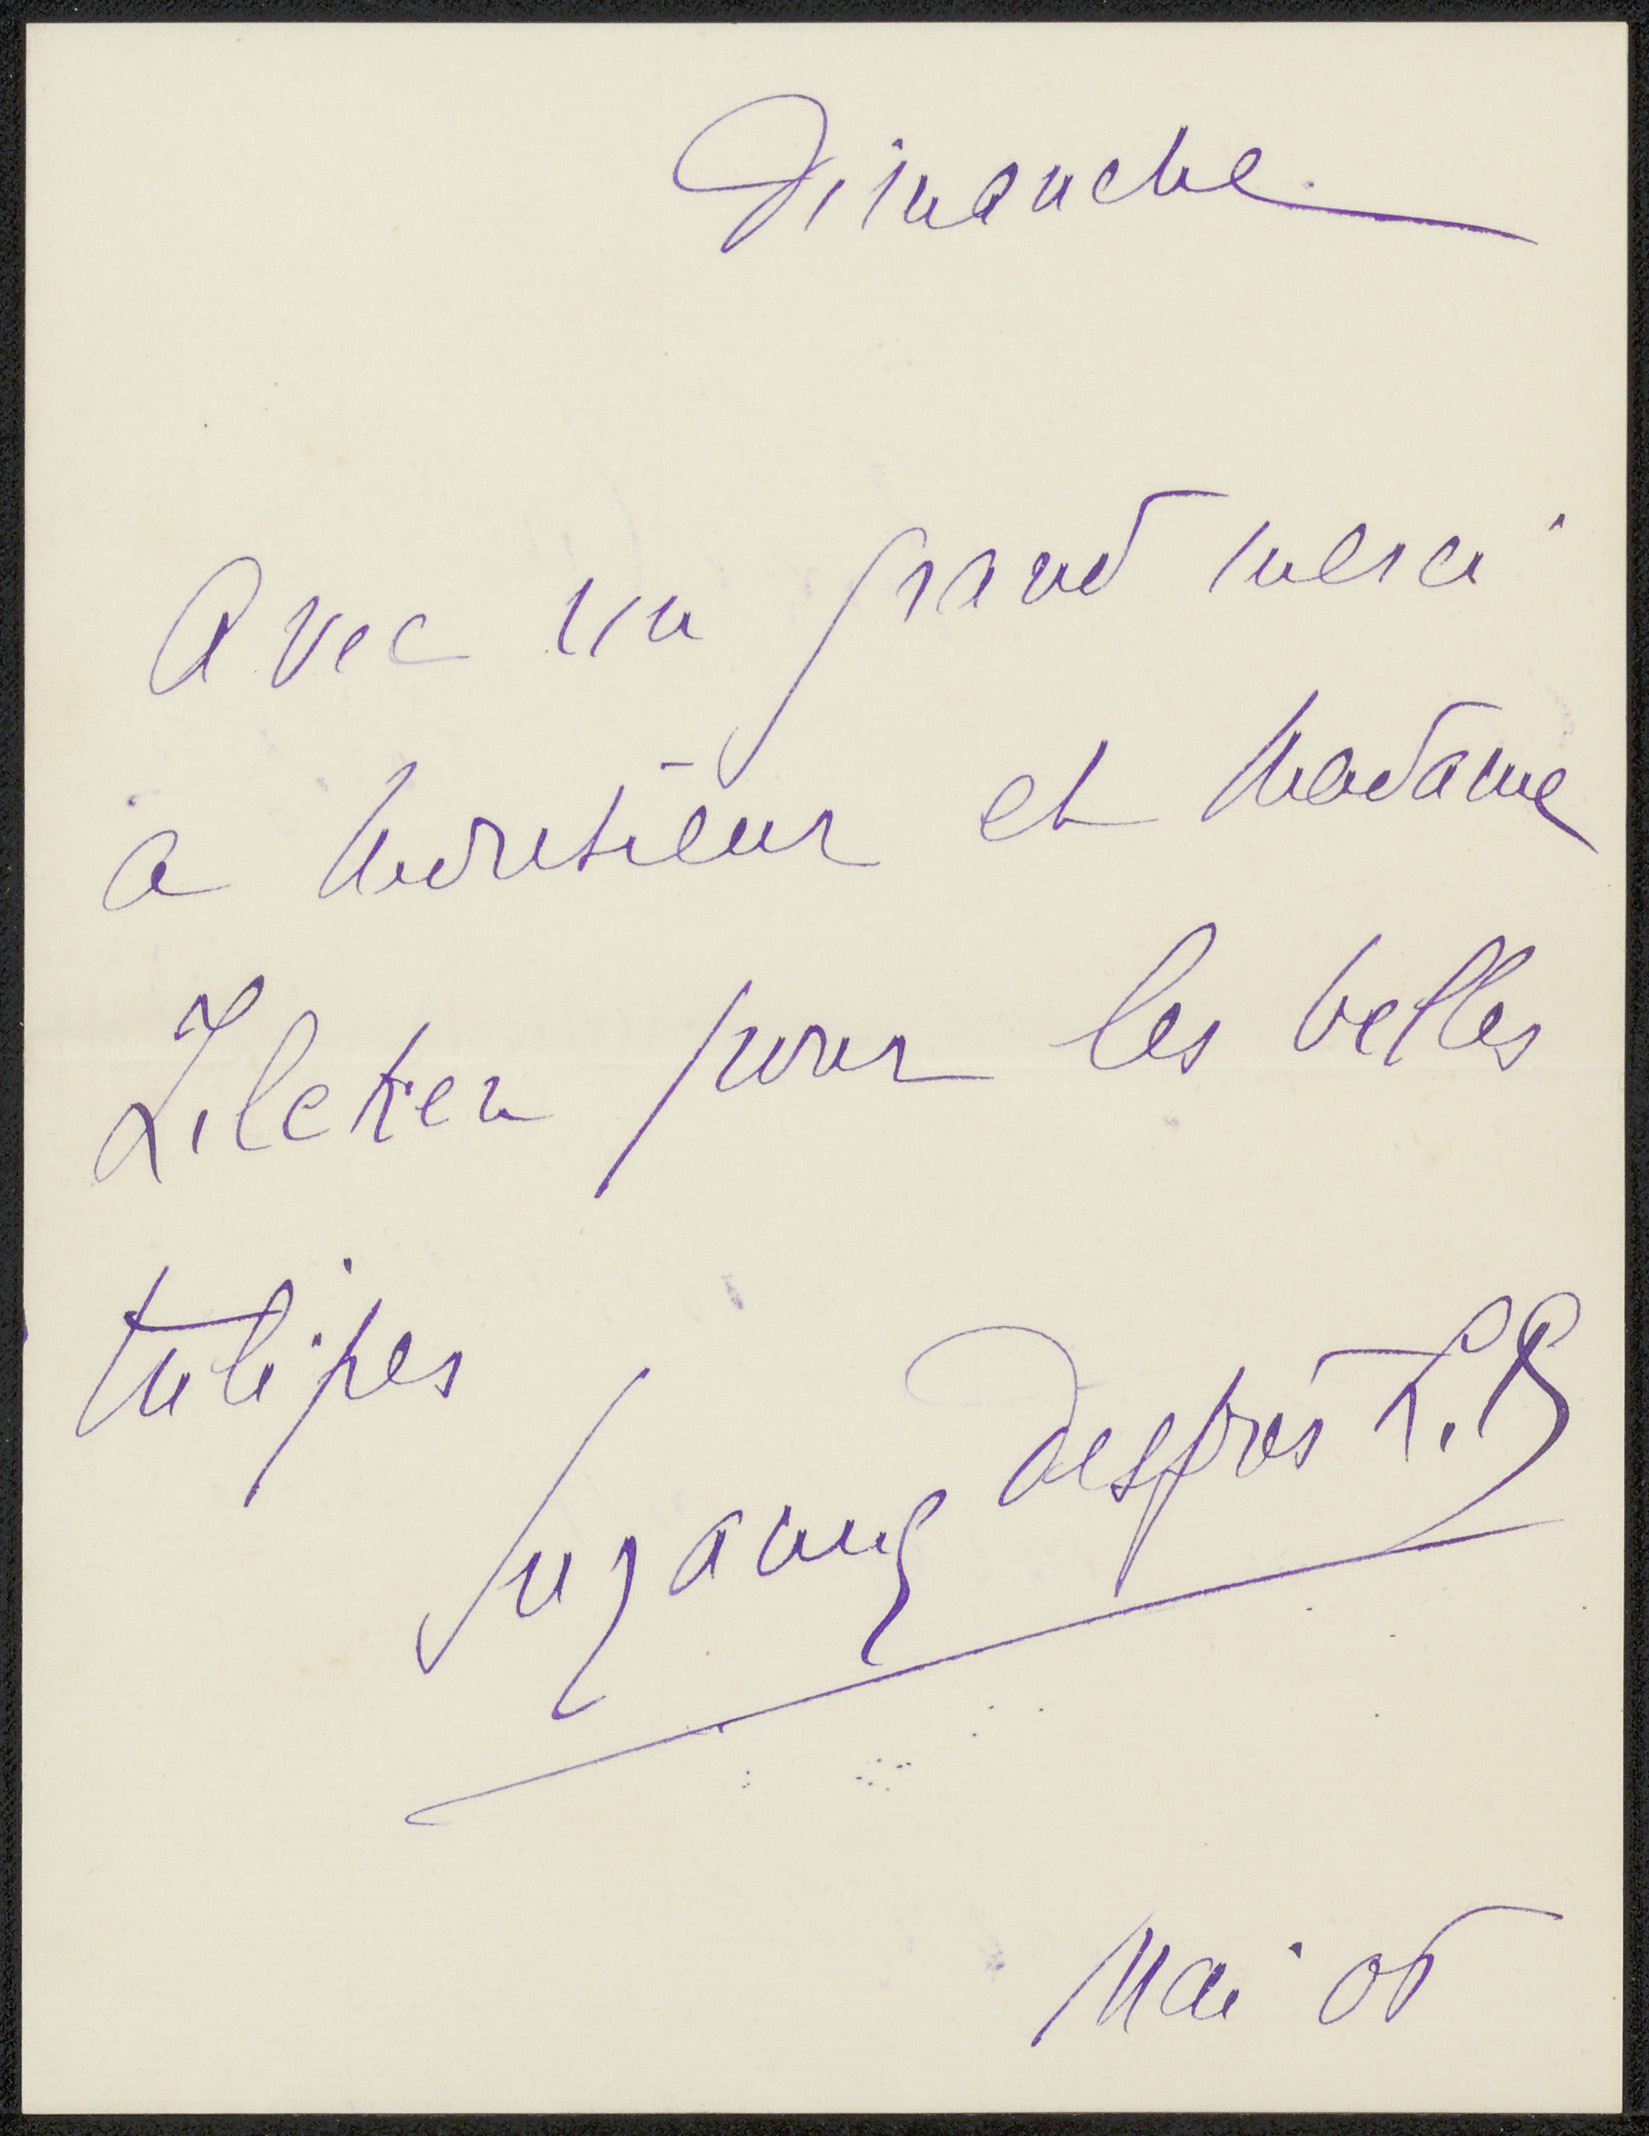 Dimanche
Avec un grand merci
a Monsieur et Madame
Zilcken pour les belles
tulipes
Suzanne Després L.P.
Mai 05